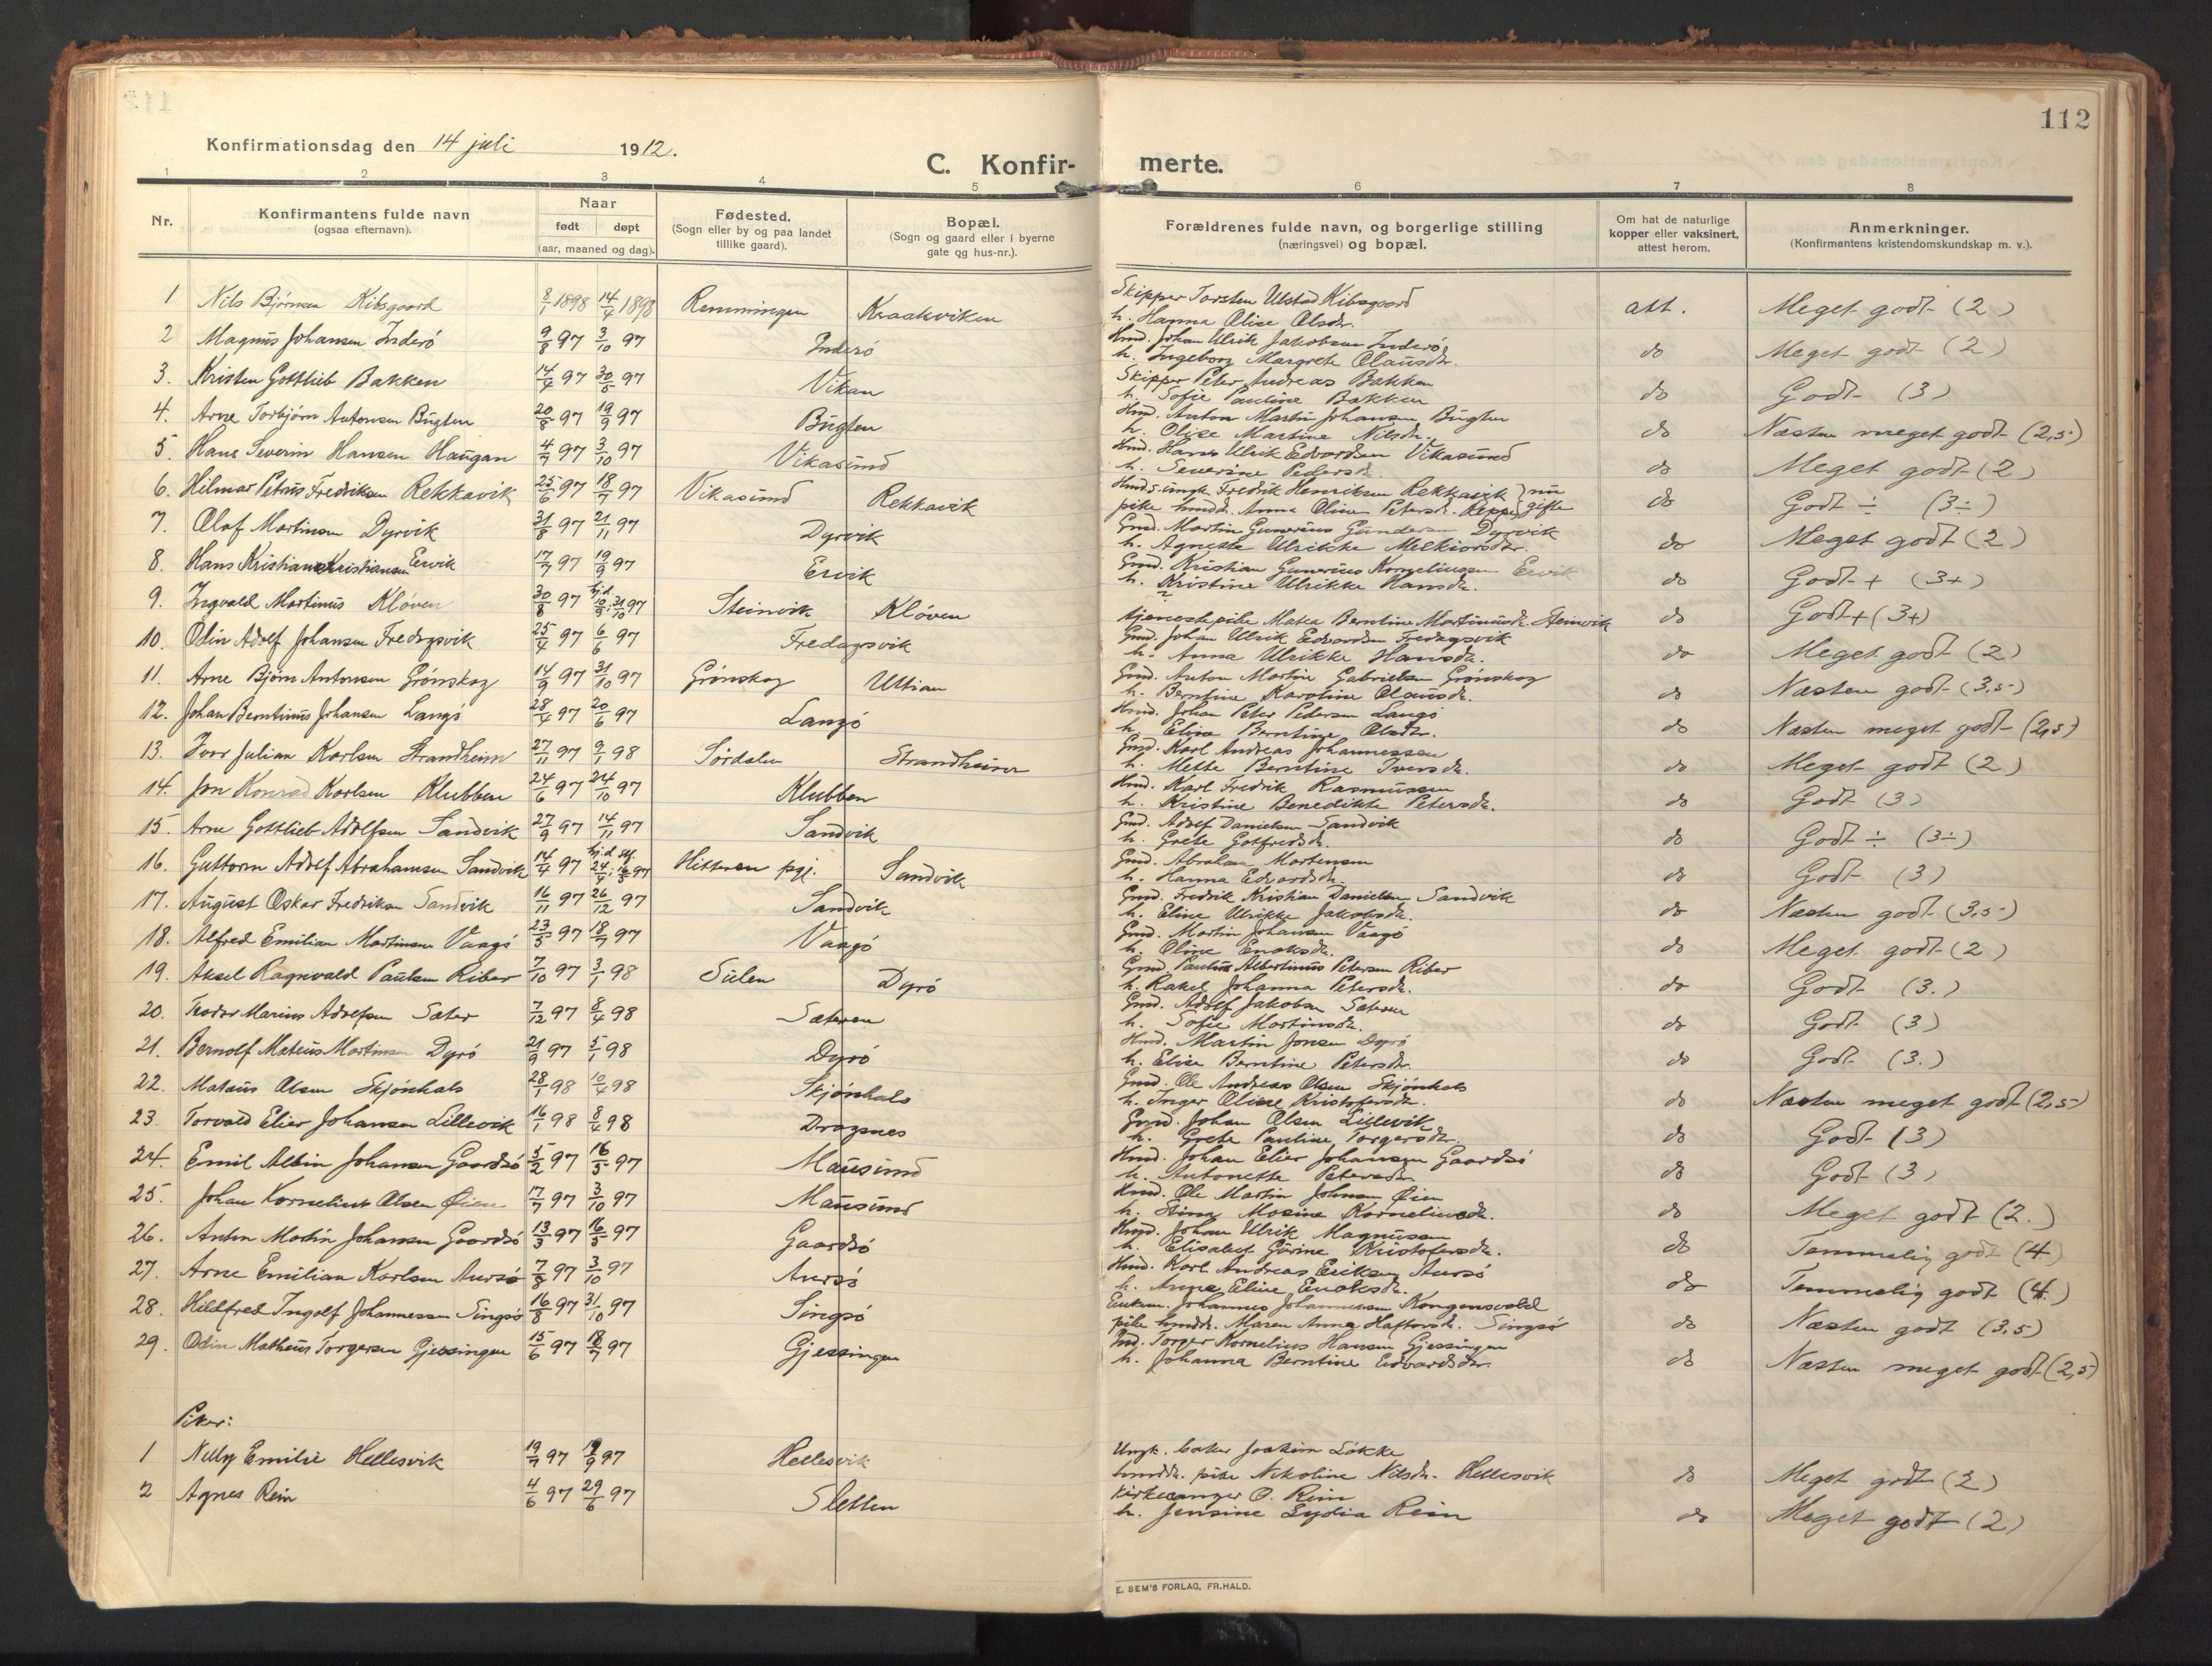 112
Konfirmationsdag den 14 juli 1912.
C. Konfir- merte.
1 2 3 4 5 6 7 8
Nr.
Konfirmantens fulde navn (ogsaa efternavn).
Naar født døpt (aar, maaned og dag).
Fødested. (Sogn eller by og paa landet tillike gaard).
Bopæl. (Sogn og gaard eller i byerne gate og hus-nr.).
Forældrenes fulde navn, og borgerlige stilling (næringsvei) og bopæl.
Om hat de naturlige kopper eller vaksinert, attest herom.
Anmerkninger. (Konfirmantens kristendomskundskap m. v.).
1 Nils Bjørnsen Kibsgaard 8/1 1898 14/4 1898 Remmingen Kraakviken Skipper Torsten Ulstad Kibsgaard att. Meget godt (2)
h. Hanna Elise Olsdr.
2 Magnus Johansen Inderö 9/8 97 3/10 97 Inderö Hmd. Johan Ulrik Jakobsen Inderö do Meget godt (2)
h. Ingeborg Margrete Olausdr.
3. Kristen Gottlieb Bakken 14/4 97 30/5 97 Vikan Skipper Peter Andreas Bakken do Godt (3)
h. Sofie Pauline Bakken
4. Arne Torbjørn Antonsen Bugten 20/8 97 19/9 97 Bugten Hmd. Anton Martin Johansen Bugten do Næsten meget godt (2,5)
h. Olise Martine Nilsdr.
5. Hans Severin Hansen Haugan 4/7 97 3/10 97 Vikasund Hmd. Hans Ulrik Edvardsen Vikasund do Meget godt (2)
h. Severine Pedersdr.
6. Hilmar Petrus Fredriksen Rekkavik 25/6 97 18/7 97 Vikasund Rekkavik Hmds. ungk. Fredrik Henriksen Rekkavik } nu do Godt ÷ (3÷)
pike hmddr. Anna Oline Petersdr. Reppe } gifte
7. Olaf Martinsen Dyrvik 31/8 97 21/11 97 Dyrvik Gmd. Martin Gunerius Gundersen Dyrvik do Meget godt (2)
h. Agnette Ulrikke Melkiorsdr.
8. Hans Kristian Kristiansen Ervik 17/7 97 19/9 97 Ervik Gmd. Kristian Gunerius Korneliussen Ervik do Godt + (3+)
h. Kristine Ulrikke Hansdr.
9. Ingvald Martinus Kløven 30/8 97 hj.d. 10/9; 31/10 97 Steinvik Kløven tjenestepike Marta Berntine Martinusdr. Steinvik do Godt + (3+)
10. Odin Adolf Johansen Fredagsvik 25/4 97 6/6 97 Fredagsvik Gmd. Johan Ulrik Edvardsen Fredagsvik do Meget godt (2)
h. Anna Ulrikke Hansdr.
11. Arne Bjørn Antonsen Grønskag 14/9 97 31/10 97 Grønskag Uttian Gmd. Anton Martin Gabrielsen Grønskag do Næsten godt (3,5)
h. Berntine Karoline Olausdr.
12. Johan Berntinus Johansen Langö 28/4 97 20/6 97 Langö Hmd. Johan Peter Pedersen Langö do Næsten meget godt (2,5)
h. Elise Berntine Olsdr.
13. Ivar Julian Karlsen Strandheim 27/11 97 9/1 98 Sørdalen Strandheim Gmd. Karl Andreas Johannessen do Meget godt (2)
h. Mette Berntine Iversdr.
14. Jon Konrad Karlsen Klubben 24/6 97 24/10 97 Klubben Hmd. Karl Fredrik Rasmussen do Godt (3)
h. Kristine Benedikte Petersdr.
15. Arne Gottlieb Adolfsen Sandvik 27/9 97 14/11 97 Sandvik Gmd. Adolf Danielsen Sandvik do Godt ÷ (3÷)
h. Grete Gotfredsdr.
16. Guttorm Adolf Abrahamsen Sandvik 14/4 97 hj.d. 24/4; stf. 16/5 97 Hitteren pgj. Sandvik Gmd. Abraham Mortensen do Godt (3)
h. Hanna Edvardsdr.
17. August Oskar Fredriksen Sandvik 16/11 97 26/12 97 Sandvik Gmd. Fredrik Kristian Danielsen Sandvik do Næsten godt (3,5)
h. Eline Ulrikke Jakobsdr.
18. Alfred Emilian Martinsen Vaagö 23/5 97 18/7 97 Vaagö Gmd. Martin Johansen Vaagö do Meget godt (2)
h. Oline Enoksdr.
19. Aksel Ragnvald Paulsen Riber 7/10 97 3/1 98 Sulen Dyrö Gmd. Paulus Albertinus Petersen Riber do Godt (3.)
h. Rakel Johanna Petersdr.
20. Teodor Marius Adolfsen Sæter 7/12 97 8/4 98 Sæteren Gmd. Adolf Jakobsen Sæteren do Godt (3)
h. Sofie Martinsdr.
21. Bernolf Mateus Martinsen Dyrö 21/9 97 5/1 98 Dyrö Hmd. Martin Jonsen Dyrö do Godt (3.)
h. Elise Berntine Petersdr.
22. Mataus Olsen Skjönhals 28/1 98 10/4 98 Skjönhals Gmd. Ole Andreas Olsen Skjönhals do Næsten meget godt (2,5)
h. Inger Oline Kristofersdr.
23. Torvald Elier Johansen Lillevik 16/1 98 8/4 98 Dragsnes Gmd. Johan Olsen Lillevik do Godt (3)
h. Grete Pauline Torgersdr.
24. Emil Albin Johansen Gaardsö 5/2 97 16/5 97 Mausund Hmd. Johan Elier Johansen Gaardsö do Godt (3)
h. Antonette Petersdr.
25. Johan Kornelius Olsen Øien 17/7 97 3/10 97 Mausund Hmd. Ole Martin Johnsen Øien do Meget godt (2.)
h. Stina Mosine Korneliusdr.
26. Anton Martin Johansen Gaardsö 13/3 97 16/5 97 Gaardsö Hmd. Johan Ulrik Magnussen do Temmelig godt (4)
h. Elisabet Gurine Kristofersdr.
27. Arne Emilian Karlsen Aursö 7/8 97 3/10 97 Aursö Hmd. Karl Andreas Eriksen Aursö do Temmelig godt (4.)
h. Anne Eline Enoksdr.
28. Hillfred Ingolf Johannessen Singsö 16/8 97 31/10 97 Singsö Enkem. Johannes Johannessen Kongensvold do Næsten godt (3,5)
pike hmddr. Maren Anna Haftorsdr. Singsö
29. Odin Matheus Torgersen Gjessingen 15/6 97 18/7 97 Gjessingen Ind. Torger Kornelius Hansen Gjessingen do Næsten meget godt (2,5)
h. Johanna Berntine Edvardsdr.
Piker:
1 Nelly Emilie Hellesvik 19/7 97 19/9 97 Hellesvik Ungk. baker Joakim Løkke do Meget godt (2)
hmddr. pike Nikoline Nilsdr. Hellesvik
2 Agnes Rein 4/6 97 29/6 97 Sletten Kirkesanger O. Rein do Meget godt (2)
h. Jensine Lydia Rein
E. SEM'S FORLAG, FR.HALD.